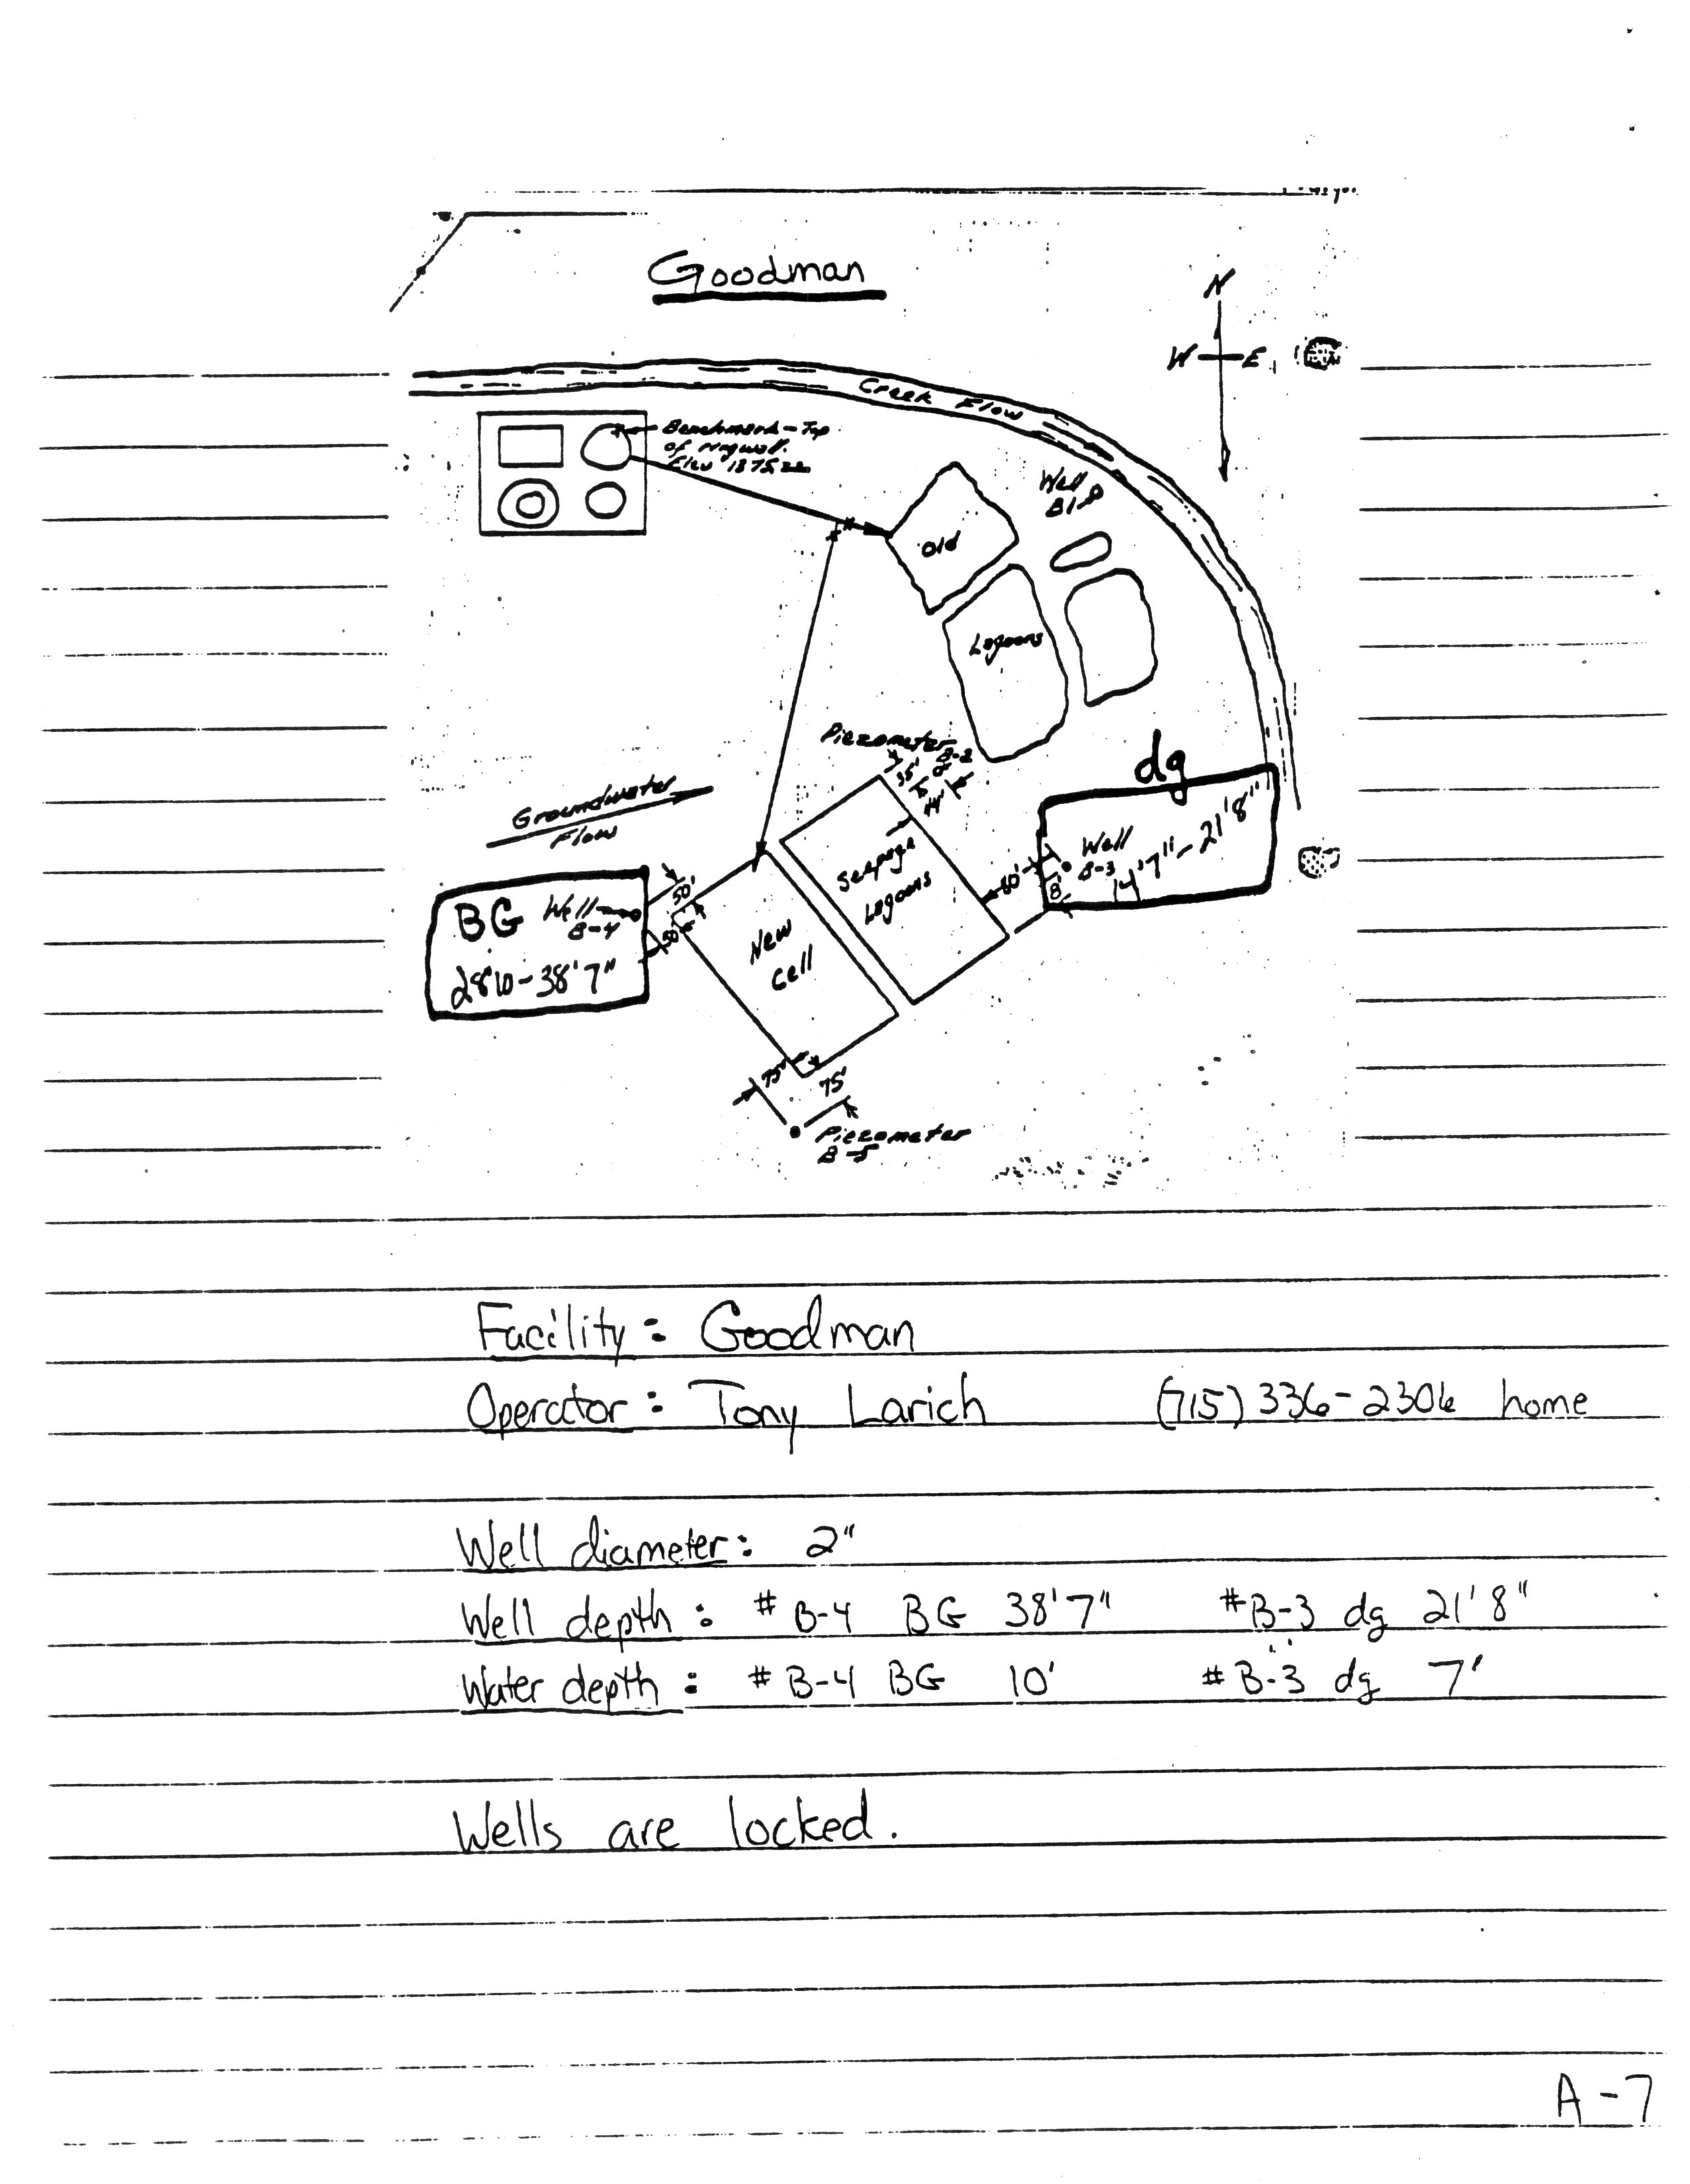 Goodman
N
W E
Creek Flow
Benchmark - Top
of ringwall.
Elev 1375
Well
B1
Old
Lagoons
Piezometer
B-2
35'
44'
dg
Groundwater
Flow
Well
B-3
14'7"-21'8"
60'
8'
Seepage
Lagoons
50'
50'
BG Well
B-4
28'10-38'7"
New
Cell
75'
75'
Piezometer
B-5
Facility: Goodman
Operator: Tony Larich (715) 336-2306 home
Well diameter: 2"
Well depth: # B-4 BG 38'7" #B-3 dg 21'8"
Water depth: # B-4 BG 10' # B-3 dg 7'
Wells are locked.
A-7